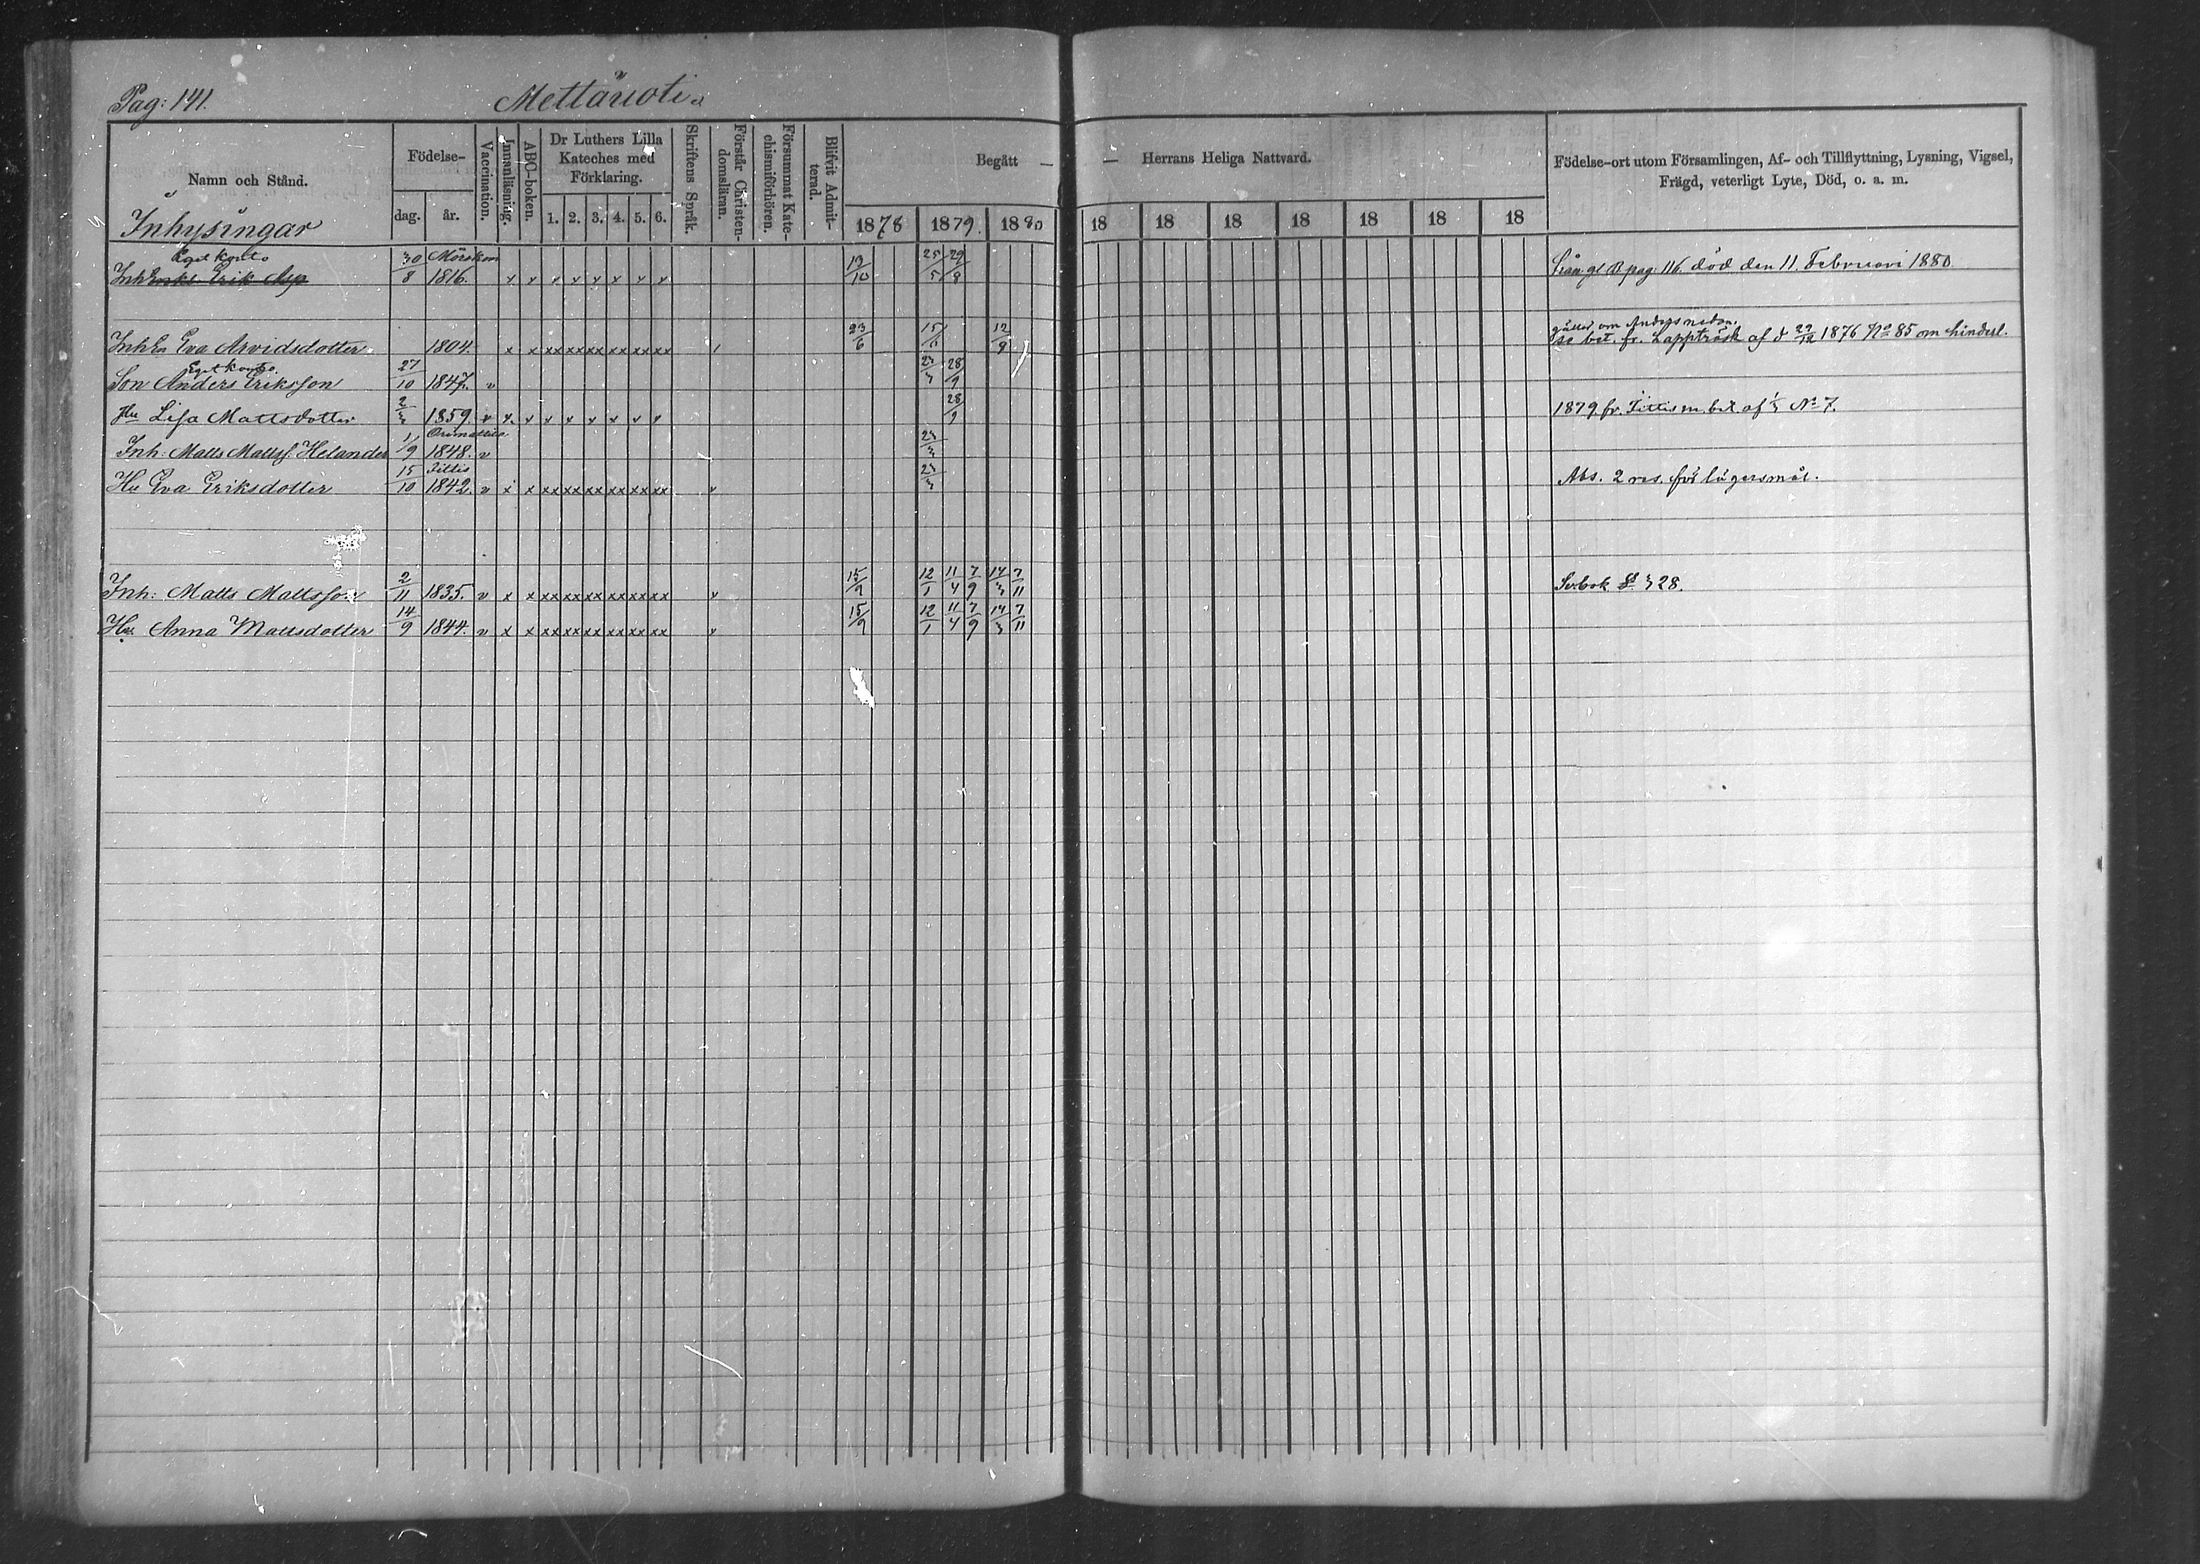 Pag: 141.
Mettänoti.
Namn och Stånd.
Födelse-
dag.
år.
Vaccination.
Innanläsning.
ABC-boken.
Dr Luthers Lilla
Kateches med
Förklaring.
1. 2. 3. 4. 5. 6.
Skriftens Språk.
Förstår Christen-
domsläran.
Försummat Kate-
chismiförhören.
Blifvit Admit-
terad.
Begått — — Herrans Heliga Nattvard.
1878 1879. 1880 18 18 18 18 18 18 18
Födelse-ort utom Församlingen, Af- och Tillflyttning, Lysning, Vigsel,
Frägd, veterligt Lyte, Död, o. a. m.
Inhysingar
Eget konto
30 Mörskom 19 25 29
Inh Enkl. Erik Asp 8 1816. v v v v v v v v 10 5 8 från gl B pag 116. död den 11 Februari 1880
23 15 12 gäller om Anders nedan.
Inh En Eva Arvidsdotter 1804. x x xx xx xx xx xx xx 6 9 se bet. fr. Lappträsk af d 29/12 1876 No 85 om hinderl.
Eget konto. 27 23 28
Son Anders Eriksson 10 1847. v 3 9
2 28
Hu Lisa Mattsdotter 3 1859. v v v v v v v v v 9 1879 fr. Jittis m. bet. af No 7.
1 Orimattila 23
Inh. Matts Matts. Helander 9 1848. v 3
15 Jittis 23
Hu Eva Eriksdotter 10 1842. v x x xx xx xx xx xx xx v 3 Abs. 2 res. för lägersmål.
2 15 12 11 7 14 7
Inh: Matts Mattsson 11 1835. v x x xx xx xx xx xx xx v 9 1 4 9 3 11 28.
14 15 12 11 7 14 7
Hu Anna Mattsdotter 9 1844. v x x xx xx xx xx xx xx v 9 1 4 9 3 11